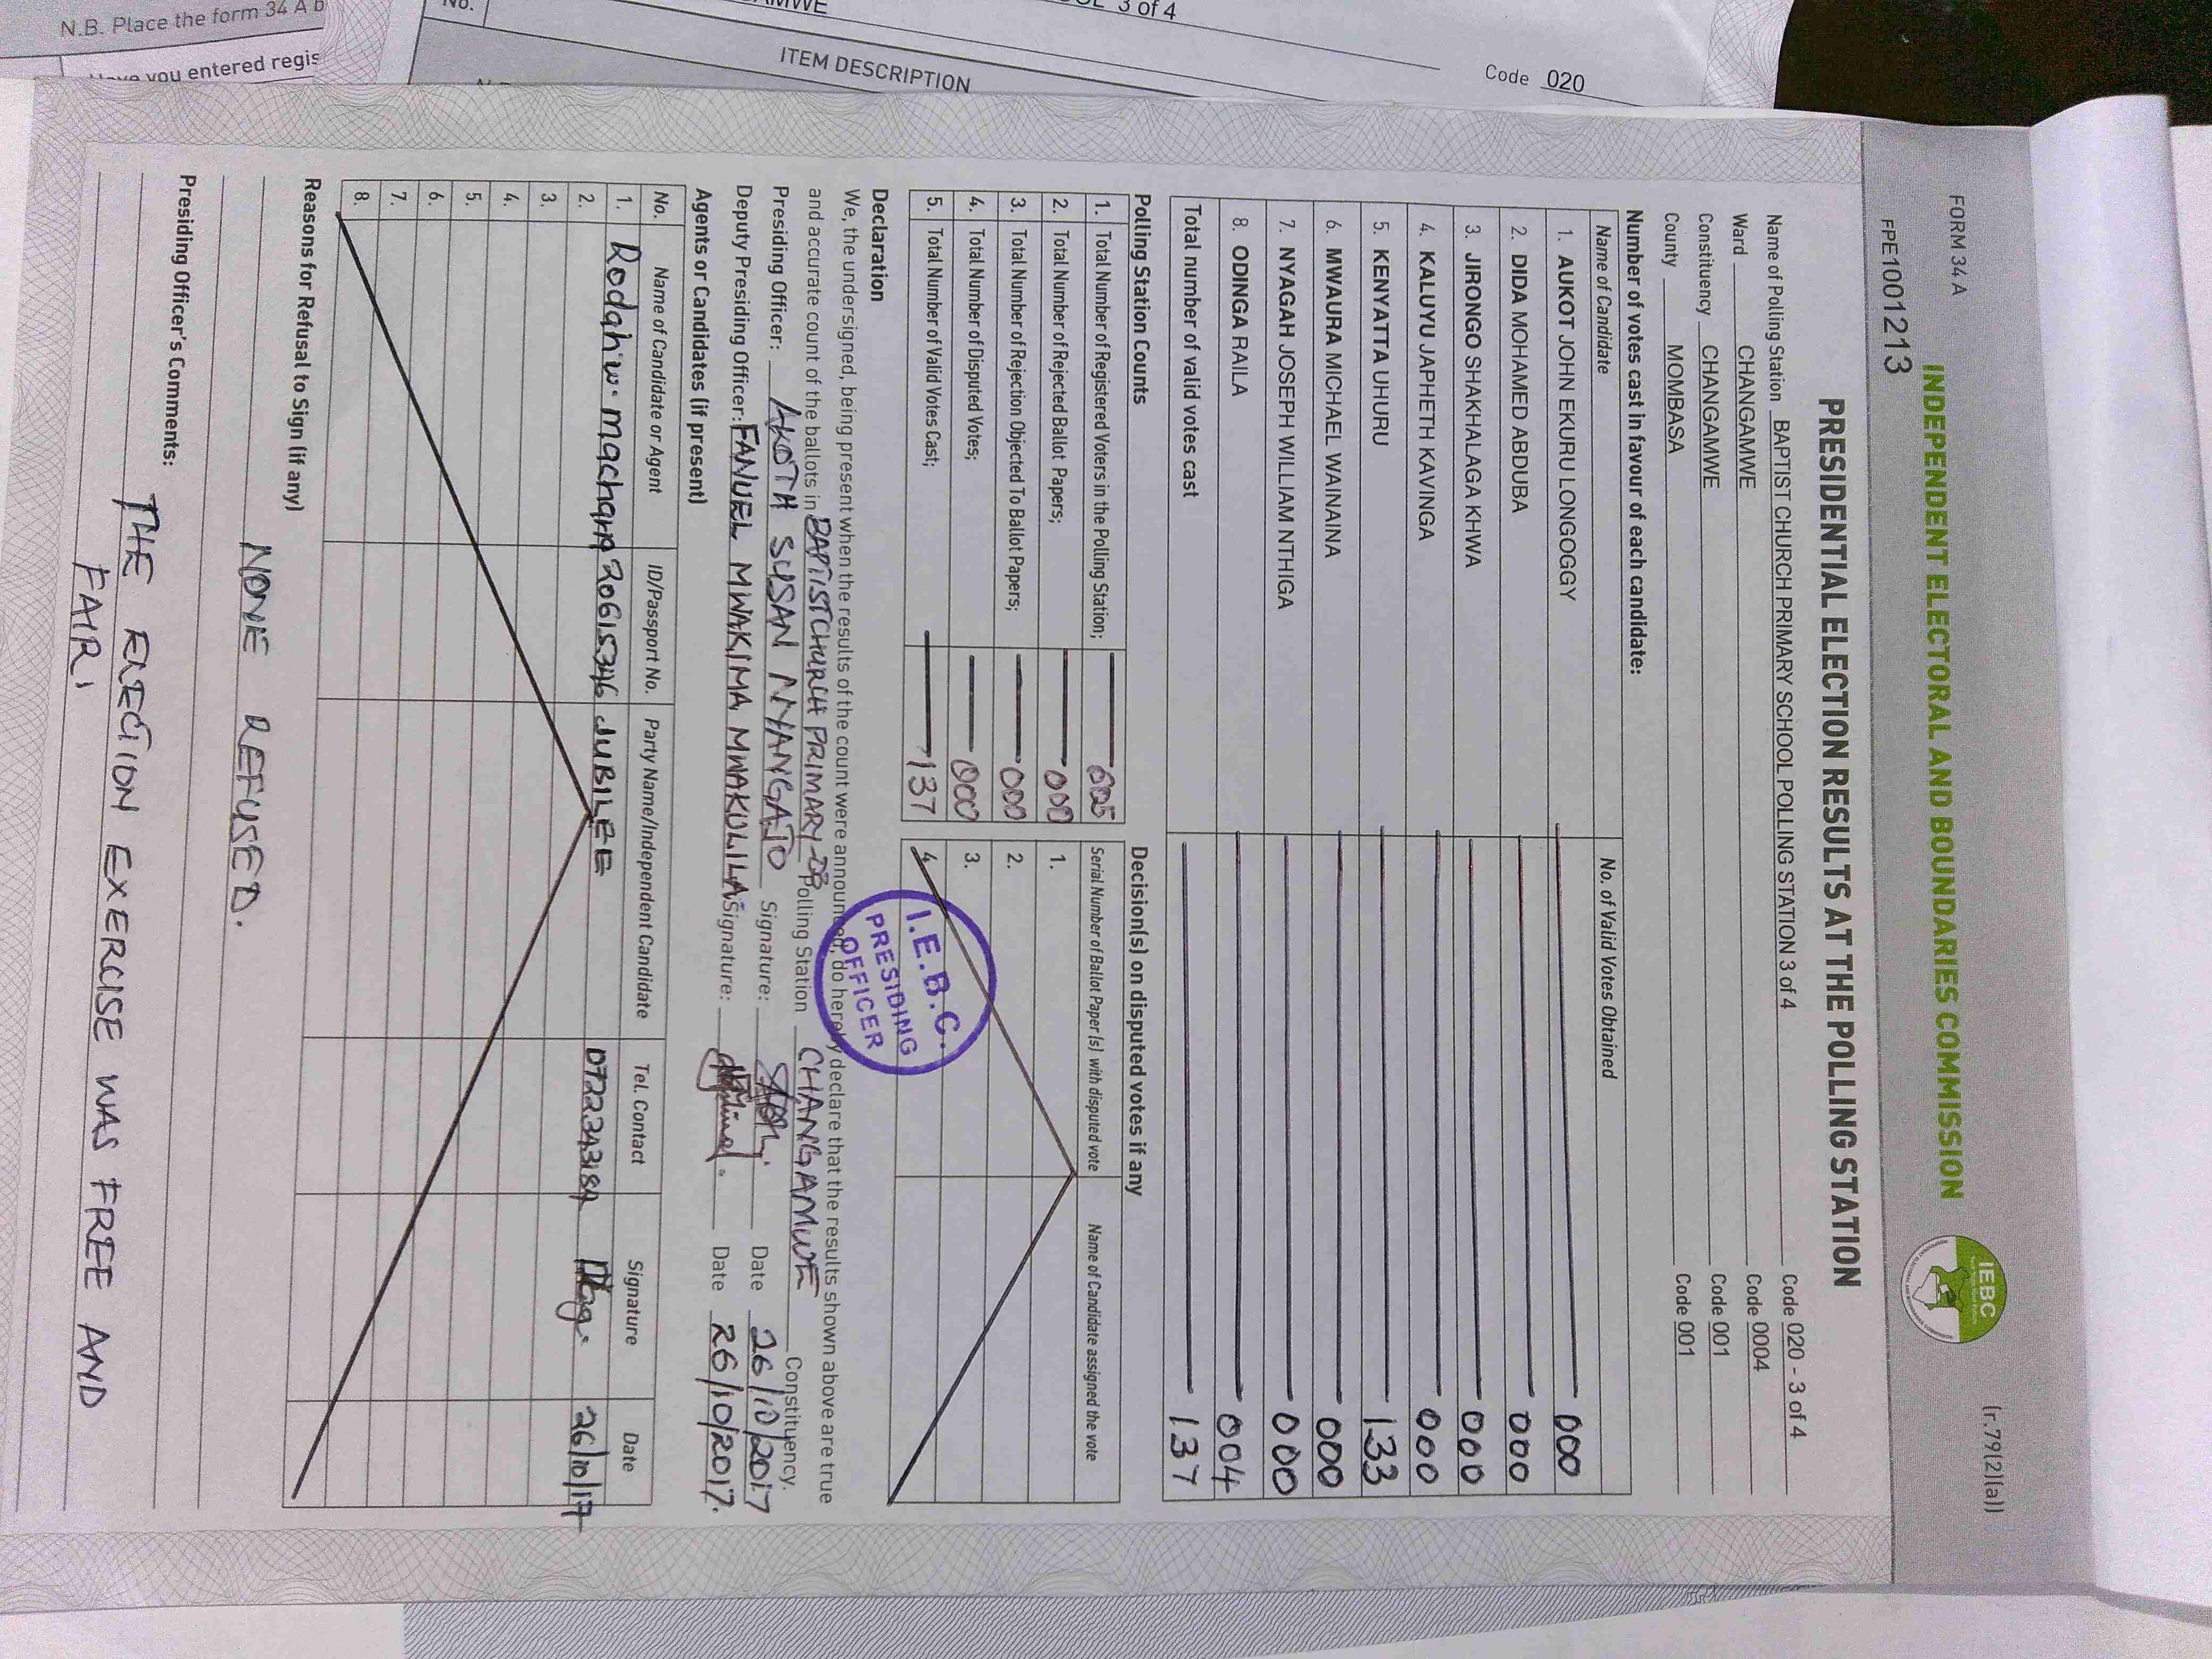 N.B. Place the form 34 A b
you entered regis
No.
3 of 4
ITEM DESCRIPTION
Code 020
FORM 34A
(r.79(2)(a))
INDEPENDENT ELECTORAL AND BOUNDARIES COMMISSION
IEBC
FPE1001213
PRESIDENTIAL ELECTION RESULTS AT THE POLLING STATION
Name of Polling Station BAPTIST CHURCH PRIMARY SCHOOL POLLING STATION 3 of 4 Code 020 - 3 of 4
Ward CHANGAMWE Code 0004
Constituency CHANGAMWE Code 001
County MOMBASA Code 001
Number of votes cast in favour of each candidate:
Name of Candidate No. of Valid Votes Obtained
1. AUKOT JOHN EKURU LONGOGGY 000
2. DIDA MOHAMED ABDUBA 000
3. JIRONGO SHAKHALAGA KHWA 000
4. KALUYU JAPHETH KAVINGA 000
5. KENYATTA UHURU 133
6. MWAURA MICHAEL WAINAINA 000
7. NYAGAH JOSEPH WILLIAM NTHIGA 000
8. ODINGA RAILA 004
Total number of valid votes cast 137
Polling Station Counts
1. Total Number of Registered Voters in the Polling Station;
2. Total Number of Rejected Ballot Papers; 000
3. Total Number of Rejection Objected To Ballot Papers; 000
4. Total Number of Disputed Votes; 000
5. Total Number of Valid Votes Cast; 137
Decision(s) on disputed votes if any
Serial Number of Ballot Paper(s) with disputed vote Name of Candidate assigned the vote
1.
2.
3.
4.
I.E.B.C.
PRESIDING
OFFICER
Declaration
We, the undersigned, being present when the results of the count were announced, do hereby declare that the results shown above are true
and accurate count of the ballots in BAPTIST CHURCH PRIMARY Polling Station CHANGAMWE Constituency.
Presiding Officer: AKOTH SUSAN NYANGATO Signature: Date 26/10/2017
Deputy Presiding Officer: FANUEL MWAKIMA MWAKULILA Signature: Date 26/10/2017.
Agents or Candidates (if present)
No. Name of Candidate or Agent ID/Passport No. Party Name/Independent Candidate Tel. Contact Signature Date
1. machana JUBILEE 26/10/17
2.
3.
4.
5.
6.
7.
8.
Reasons for Refusal to Sign (if any)
NONE REFUSED.
Presiding Officer's Comments:
THE ERECTION EXERCISE WAS FREE AND
FAIR,